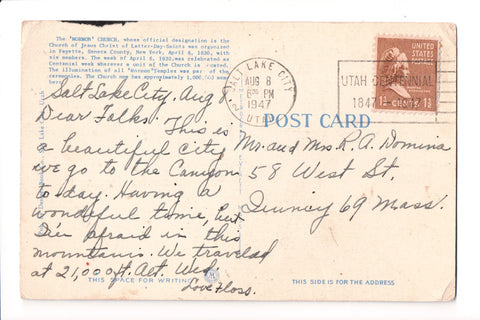 The "MORMON" CHURCH, whose official designation is the
Church of Jesus Christ of Latter-Day-Saints was organized
in Fayette, Seneca County, New York, April 6, 1830, with
six members. The week of April 6, 1930, was celebrated as
Centennial week wherever a unit of the Church is found.
The illumination of all "Mormon" Temples was part of the
ceremonies. The Church now has approximately 1,000,000
SALT LAKE CITY
AUG 8
6 PM
1947
UTAH
UTAH CENTENNIAL
1847
UNITED STATES
POSTAGE
1½ CENTS 1½
POST CARD
Salt Lake City, Aug 8
Dear Folks. This is
a beautiful city
we go to the Canyon
to day. Having a
wonderful time, but
I'm afraid in this
mountains. We traveled
at 21,000 ft. Alt. Wed.
Love Floss.
Mr. and Mrs R. A. Domina
58 West St.
Quincy 69 Mass.
THIS SPACE FOR WRITING
THIS SIDE IS FOR THE ADDRESS